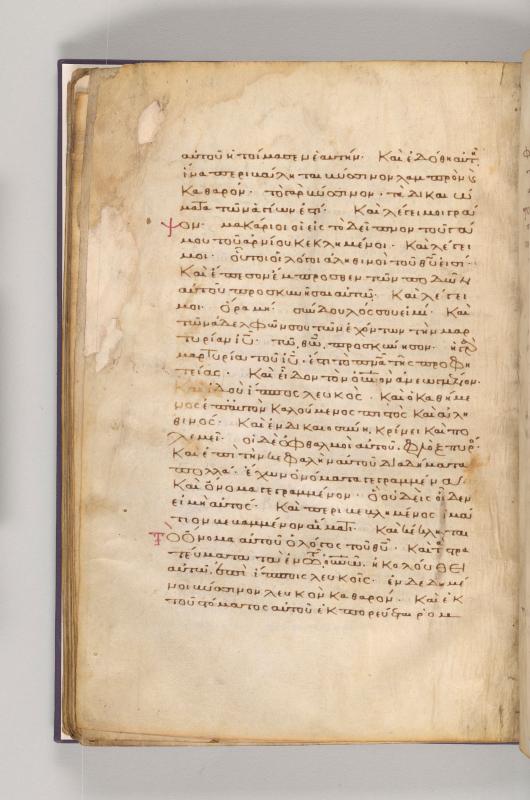 αὐτοῦ ἡτοίμασεν ἑαυτήν· Καὶ ἐδόθη αὐτῇ
ἵνα περιβάληται βύσσινον λαμπρὸν κς
Καθαρόν· τὸ γὰρ βύσσινον· τὰ δικαιώ
ματα τῶν ἁγίων ἐστί· Καὶ λέγει μοι γρά
ψον· μακάριοι οἱ εἰς τὸ δεῖπνον τοῦ γά
μου τοῦ ἀρνίου κεκλημένοι· Καὶ λέγει
μοι· οὗτοι οἱ λόγοι ἀληθινοὶ τοῦ θῦ εἰσί·
Καὶ ἔπεσον ἔμπροσθεν τῶν ποδῶν
αὐτοῦ προσκυνῆσαι αὐτῷ· Καὶ λέγει
μοι· ὅρα μή· σύνδουλός σου εἰμί· Καὶ
τῶν ἀδελφῶν σου τῶν ἐχόντων τὴν μαρ
τυρίαν ιῦ· τῷ θῷ προσκύνησον· ἡ γὰρ
μαρτυρία τοῦ ιῦ· ἐστὶ τὸ πνα τῆς προφη
τείας· Καὶ εἶδον τὸν οὐνον ἀνεωγμένον·
Καὶ ἰδοὺ ἵππος λευκὸς· Καὶ ὁ καθήμε
νος ἐπ αὐτὸν καλούμενος πιστὸς Καὶ ἀλη
θινός· Καὶ ἐν δικαιοσύνῃ κρίνει Καὶ πο
λεμεῖ· οἱ δὲ ὀφθαλμοὶ αὐτοῦ· φλὸξ πυρός·
Καὶ ἐπὶ τὴν κεφαλὴν αὐτοῦ διαδήματα
πολλά· ἔχων ὀνόματα γεγραμμένα
Καὶ ὄνομα γεγραμμένον· ὃ οὐδεὶς οἶδεν
εἰ μὴ αὐτός· Καὶ περιβεβλημένος ἱμά
τιον βεβαμμένον αἵματι· Καὶ κέκληται
τὸ ὄνομα αὐτοῦ ὁ λόγος τοῦ θῦ· Καὶ τὰ στρα
τεύματα τὰ ἐν τῷ οὐνῷ ἠκολούθει
αὐτῷ ἐπὶ ἵπποις λευκοῖς· ἐνδεδυμέ
νοι βύσσινον λευκὸν καθαρόν· Καὶ ἐκ
τοῦ στόματος αὐτοῦ ἐκπορεύεται ῥομ